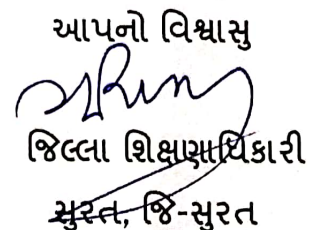 આપનો વિશ્વાસુ
જિલ્લા શિક્ષણાધિકારી
સુરત, જિ-સુરત